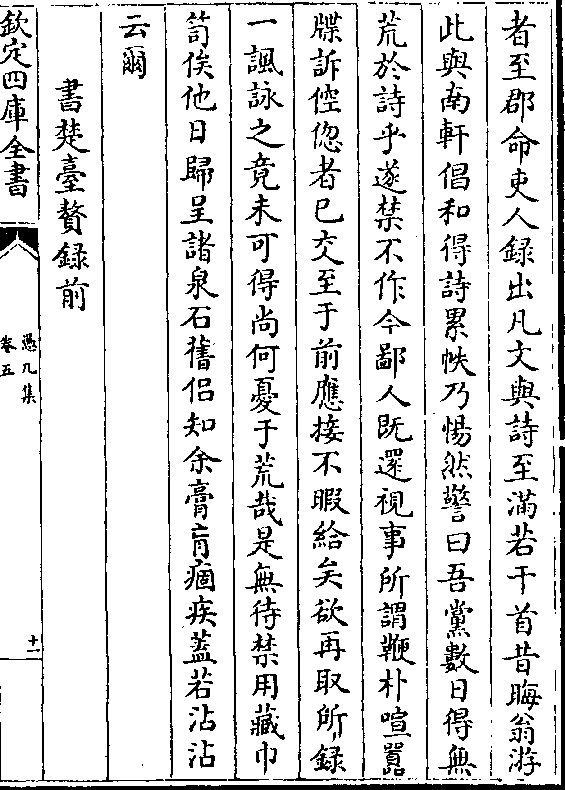 者至郡命吏人録出凡文與詩至滿若干首昔晦翁游
此與南軒倡和得詩累帙乃惕然警曰吾黨數日得無
荒於詩乎遂禁不作今鄙人既還視事所謂鞭朴喧囂
牒訴倥偬者已交至于前應接不暇給矣欲再取所録
一諷詠之竟未可得尚何憂于荒哉是無待禁用藏巾
笥俟他日歸呈諸泉石舊侣知余膏肓痼疾葢若沾沾
云爾
書楚臺贅録前
欽定四庫全書
憑几集
卷五
十一